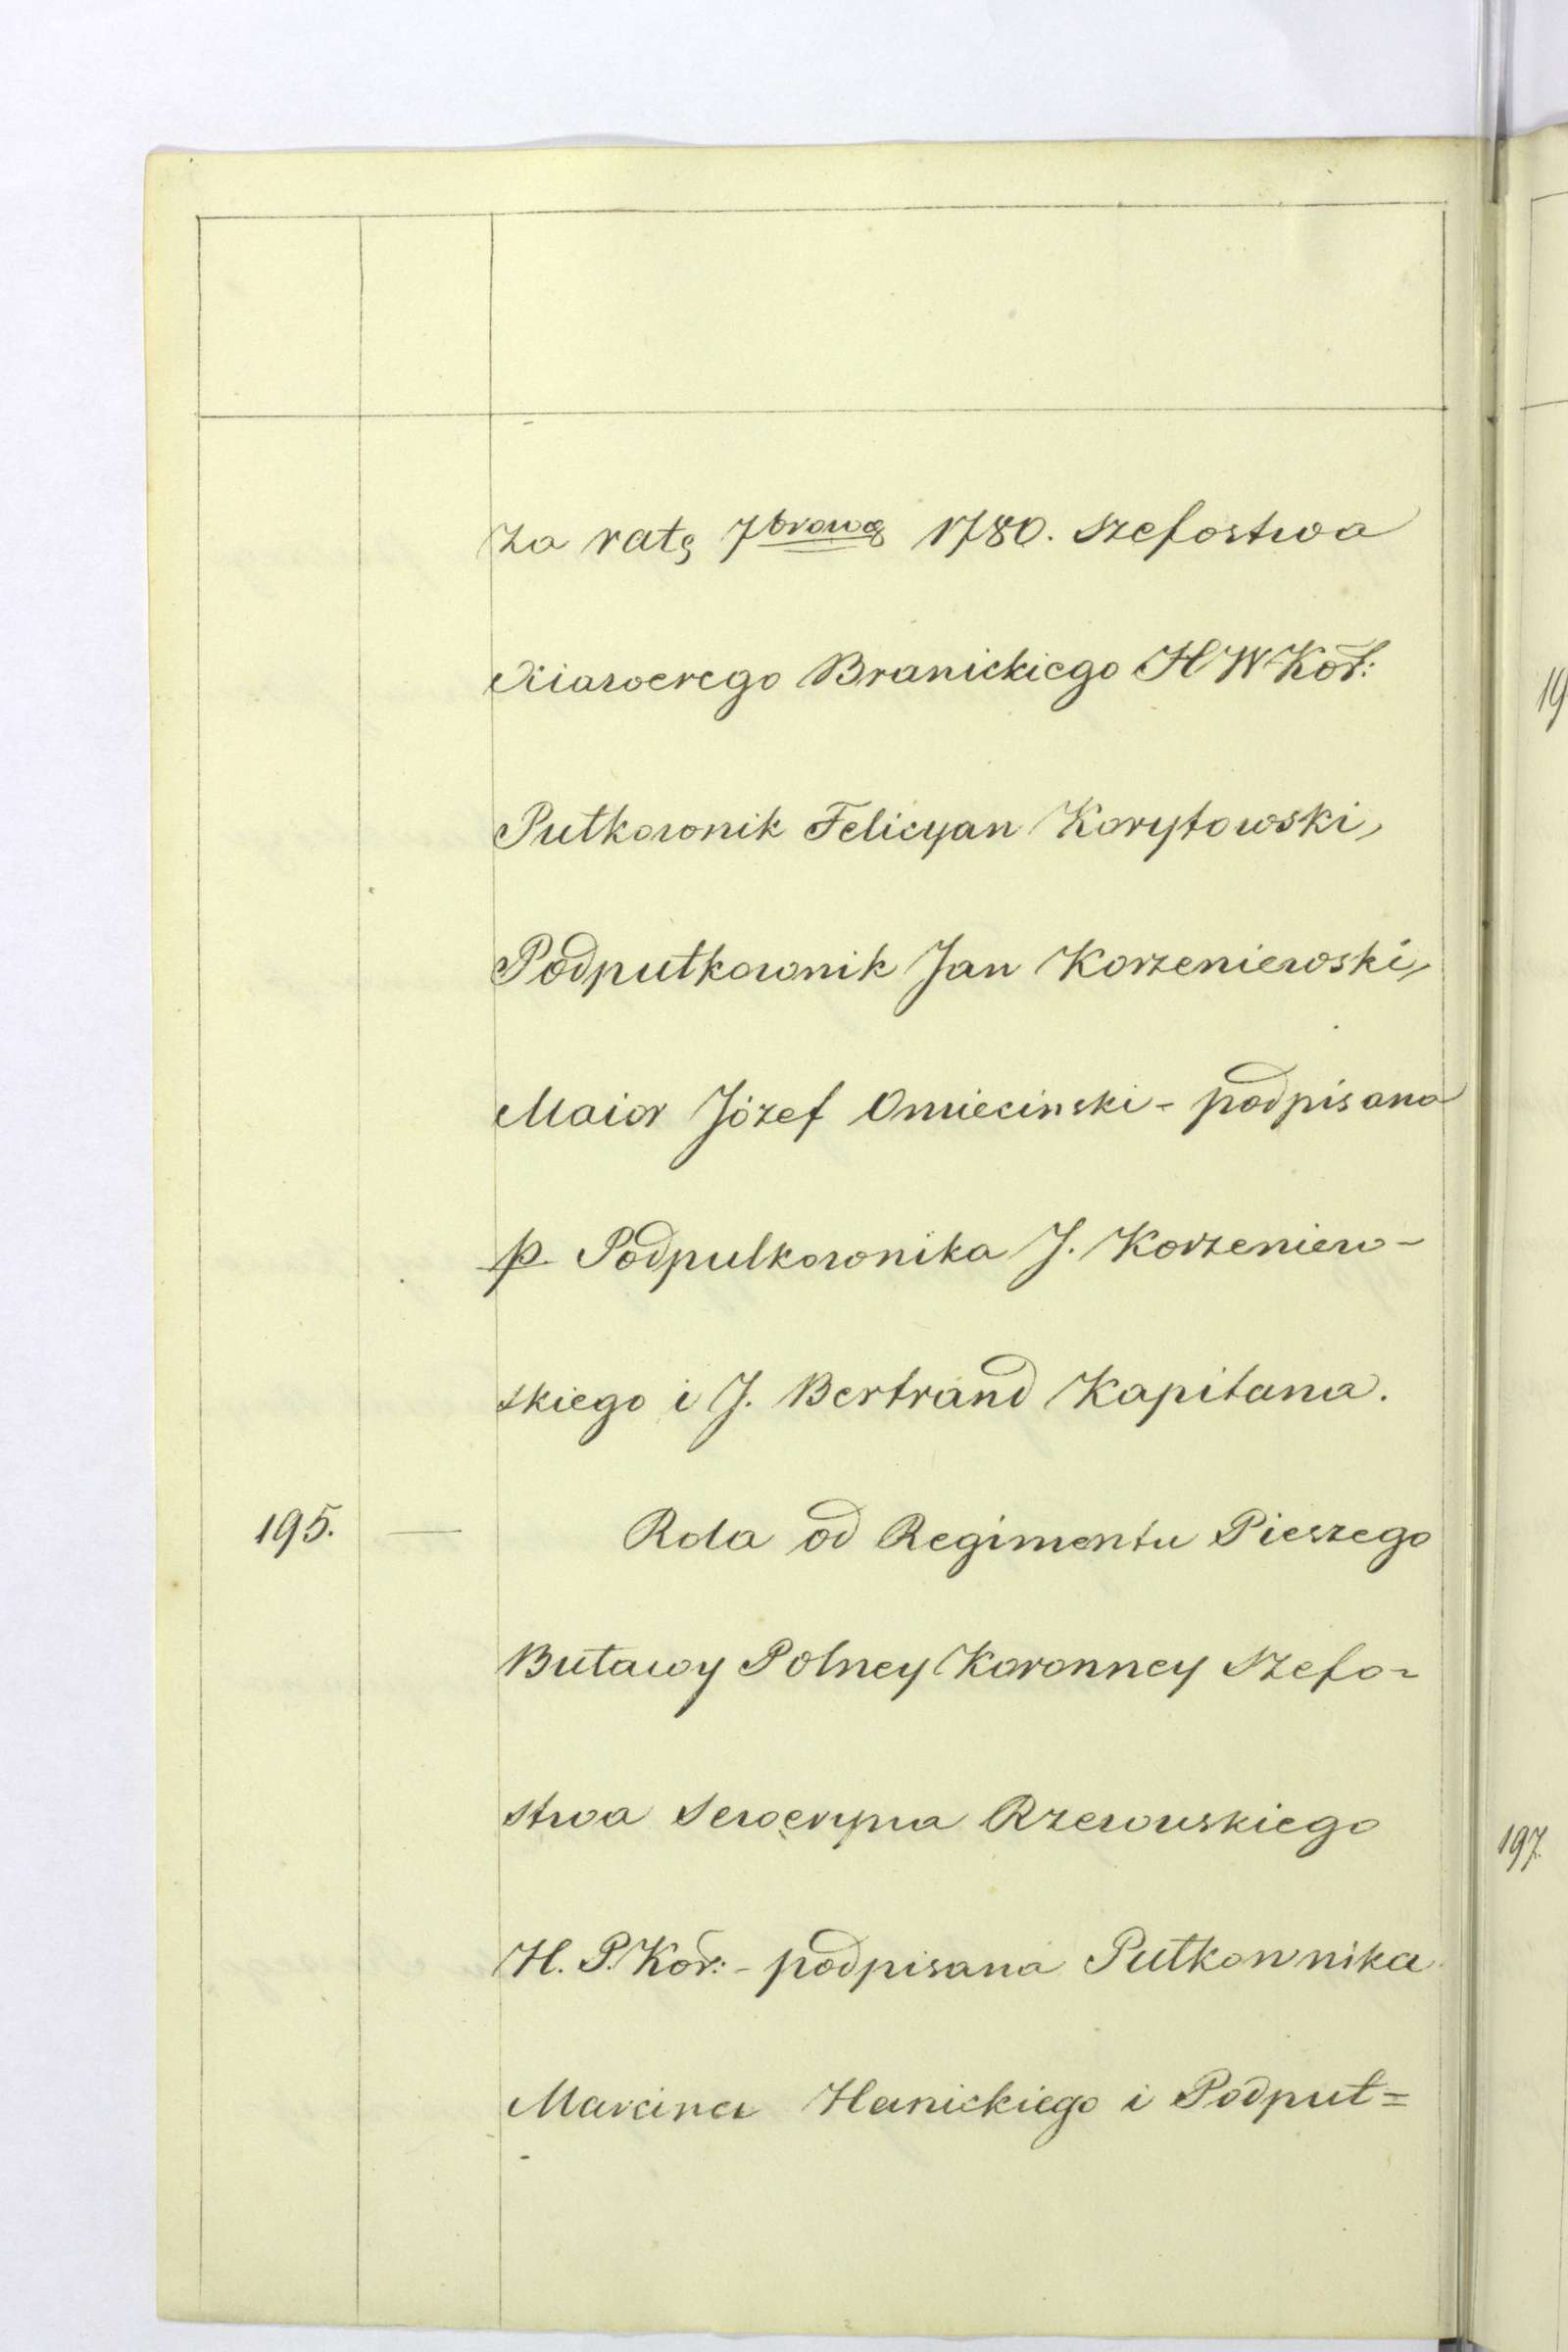 za ratę 7brową 1780. szefostwa
Xiawerego Branickiego H W Kor:
Pułkownik Felicyan Korytowski,
Podpułkownik Jan Korzeniewski,
Maior Józef Omieciński - podpisana
p. Podpulkownika J. Korzeniew-
skiego i J. Bertrand Kapitana.
195. — Rola od Regimentu Pieszego
Buławy Polney Koronney szefo-
stwa Seweryna Rzewuskiego
H. P. Kor: - podpisana Pułkownika
Marcina Hanickiego i Podpuł=
19
197.